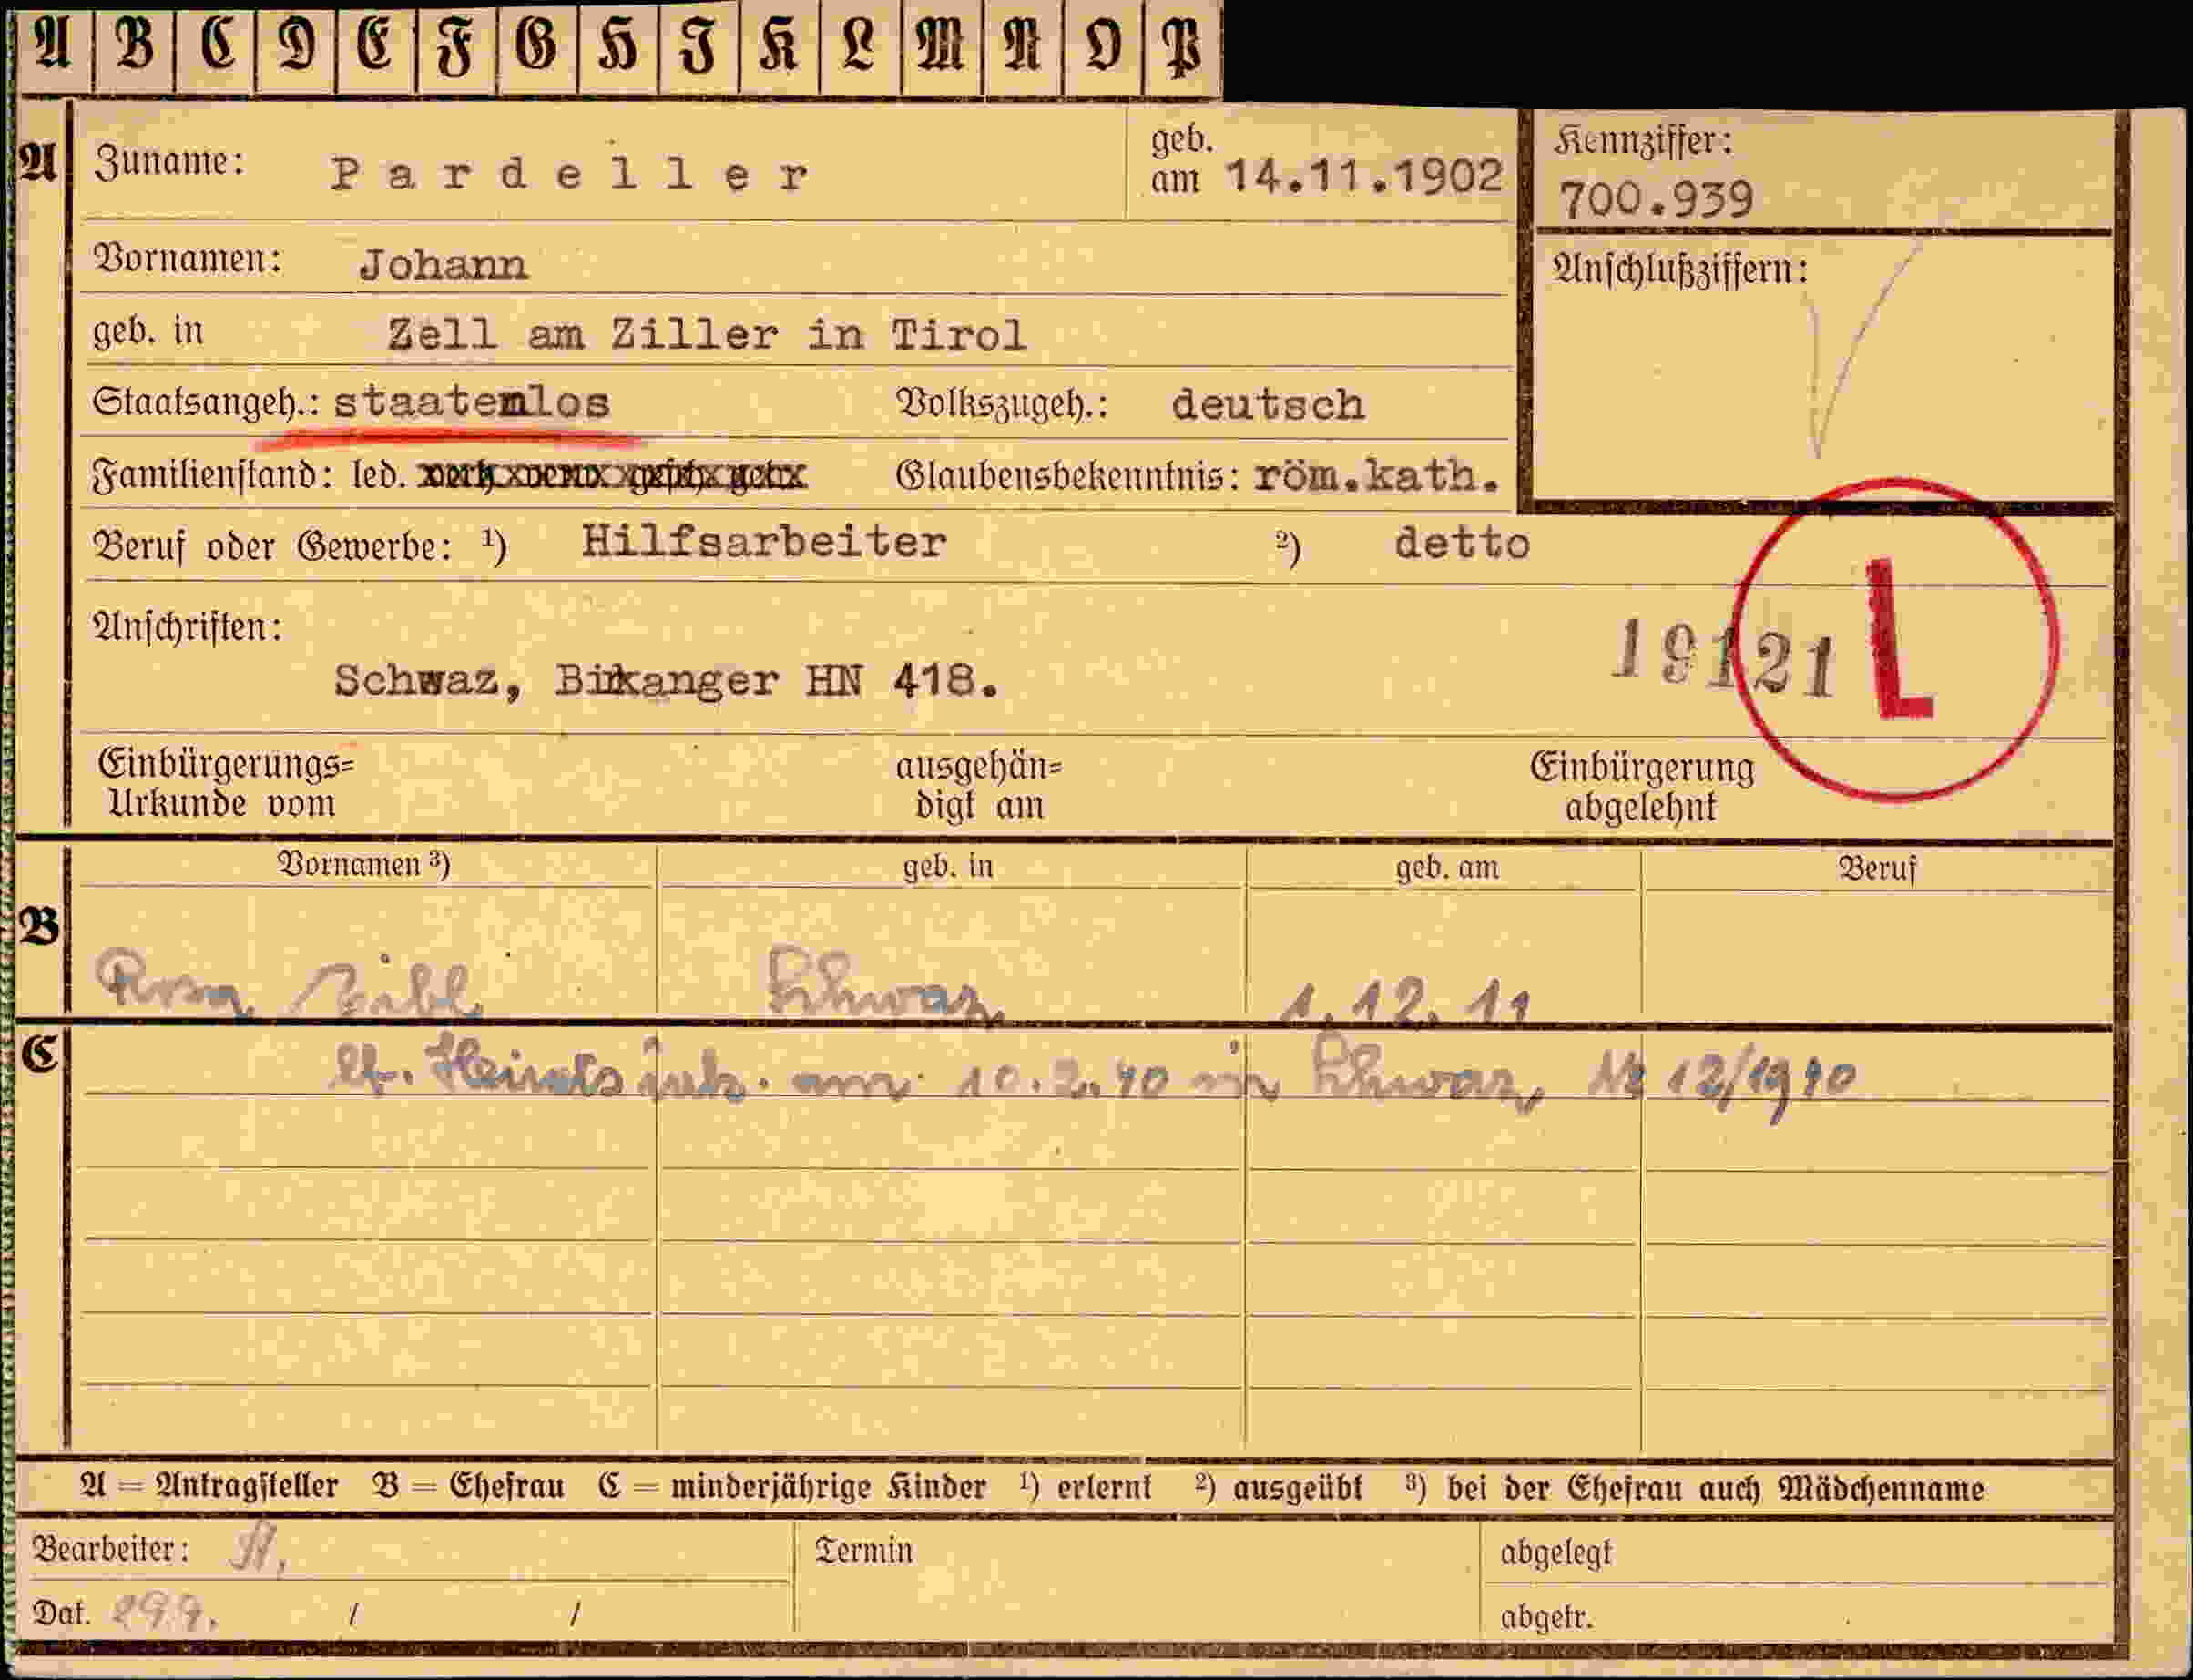 A B C D E F G H J K L M N O P
A Zuname: Pardeller geb. am 14.11.1902 Kennziffer: 700.939
Vornamen: Johann Anschlußziffern:
geb. in Zell am Ziller in Tirol
Staatsangeh.: staatenlos Volkszugeh.: deutsch
Familienstand: led. verh. verw. gesch. getr. Glaubensbekenntnis: röm.kath.
Beruf oder Gewerbe: ¹) Hilfsarbeiter ²) detto
Anschriften:
Schwaz, Birkanger HN 418. 19121 L
Einbürgerungs= ausgehän= Einbürgerung
Urkunde vom digt am abgelehnt
Vornamen ³) geb. in geb. am Beruf
B
Rosa Schwaz 1.12.11
C
lt. Heirats am 10.2.40 in Schwaz, Nr 12/1940
A = Antragsteller B = Ehefrau C = minderjährige Kinder ¹) erlernt ²) ausgeübt ³) bei der Ehefrau auch Mädchenname
Bearbeiter: Termin abgelegt
Dat. 29.9. / / abgetr.